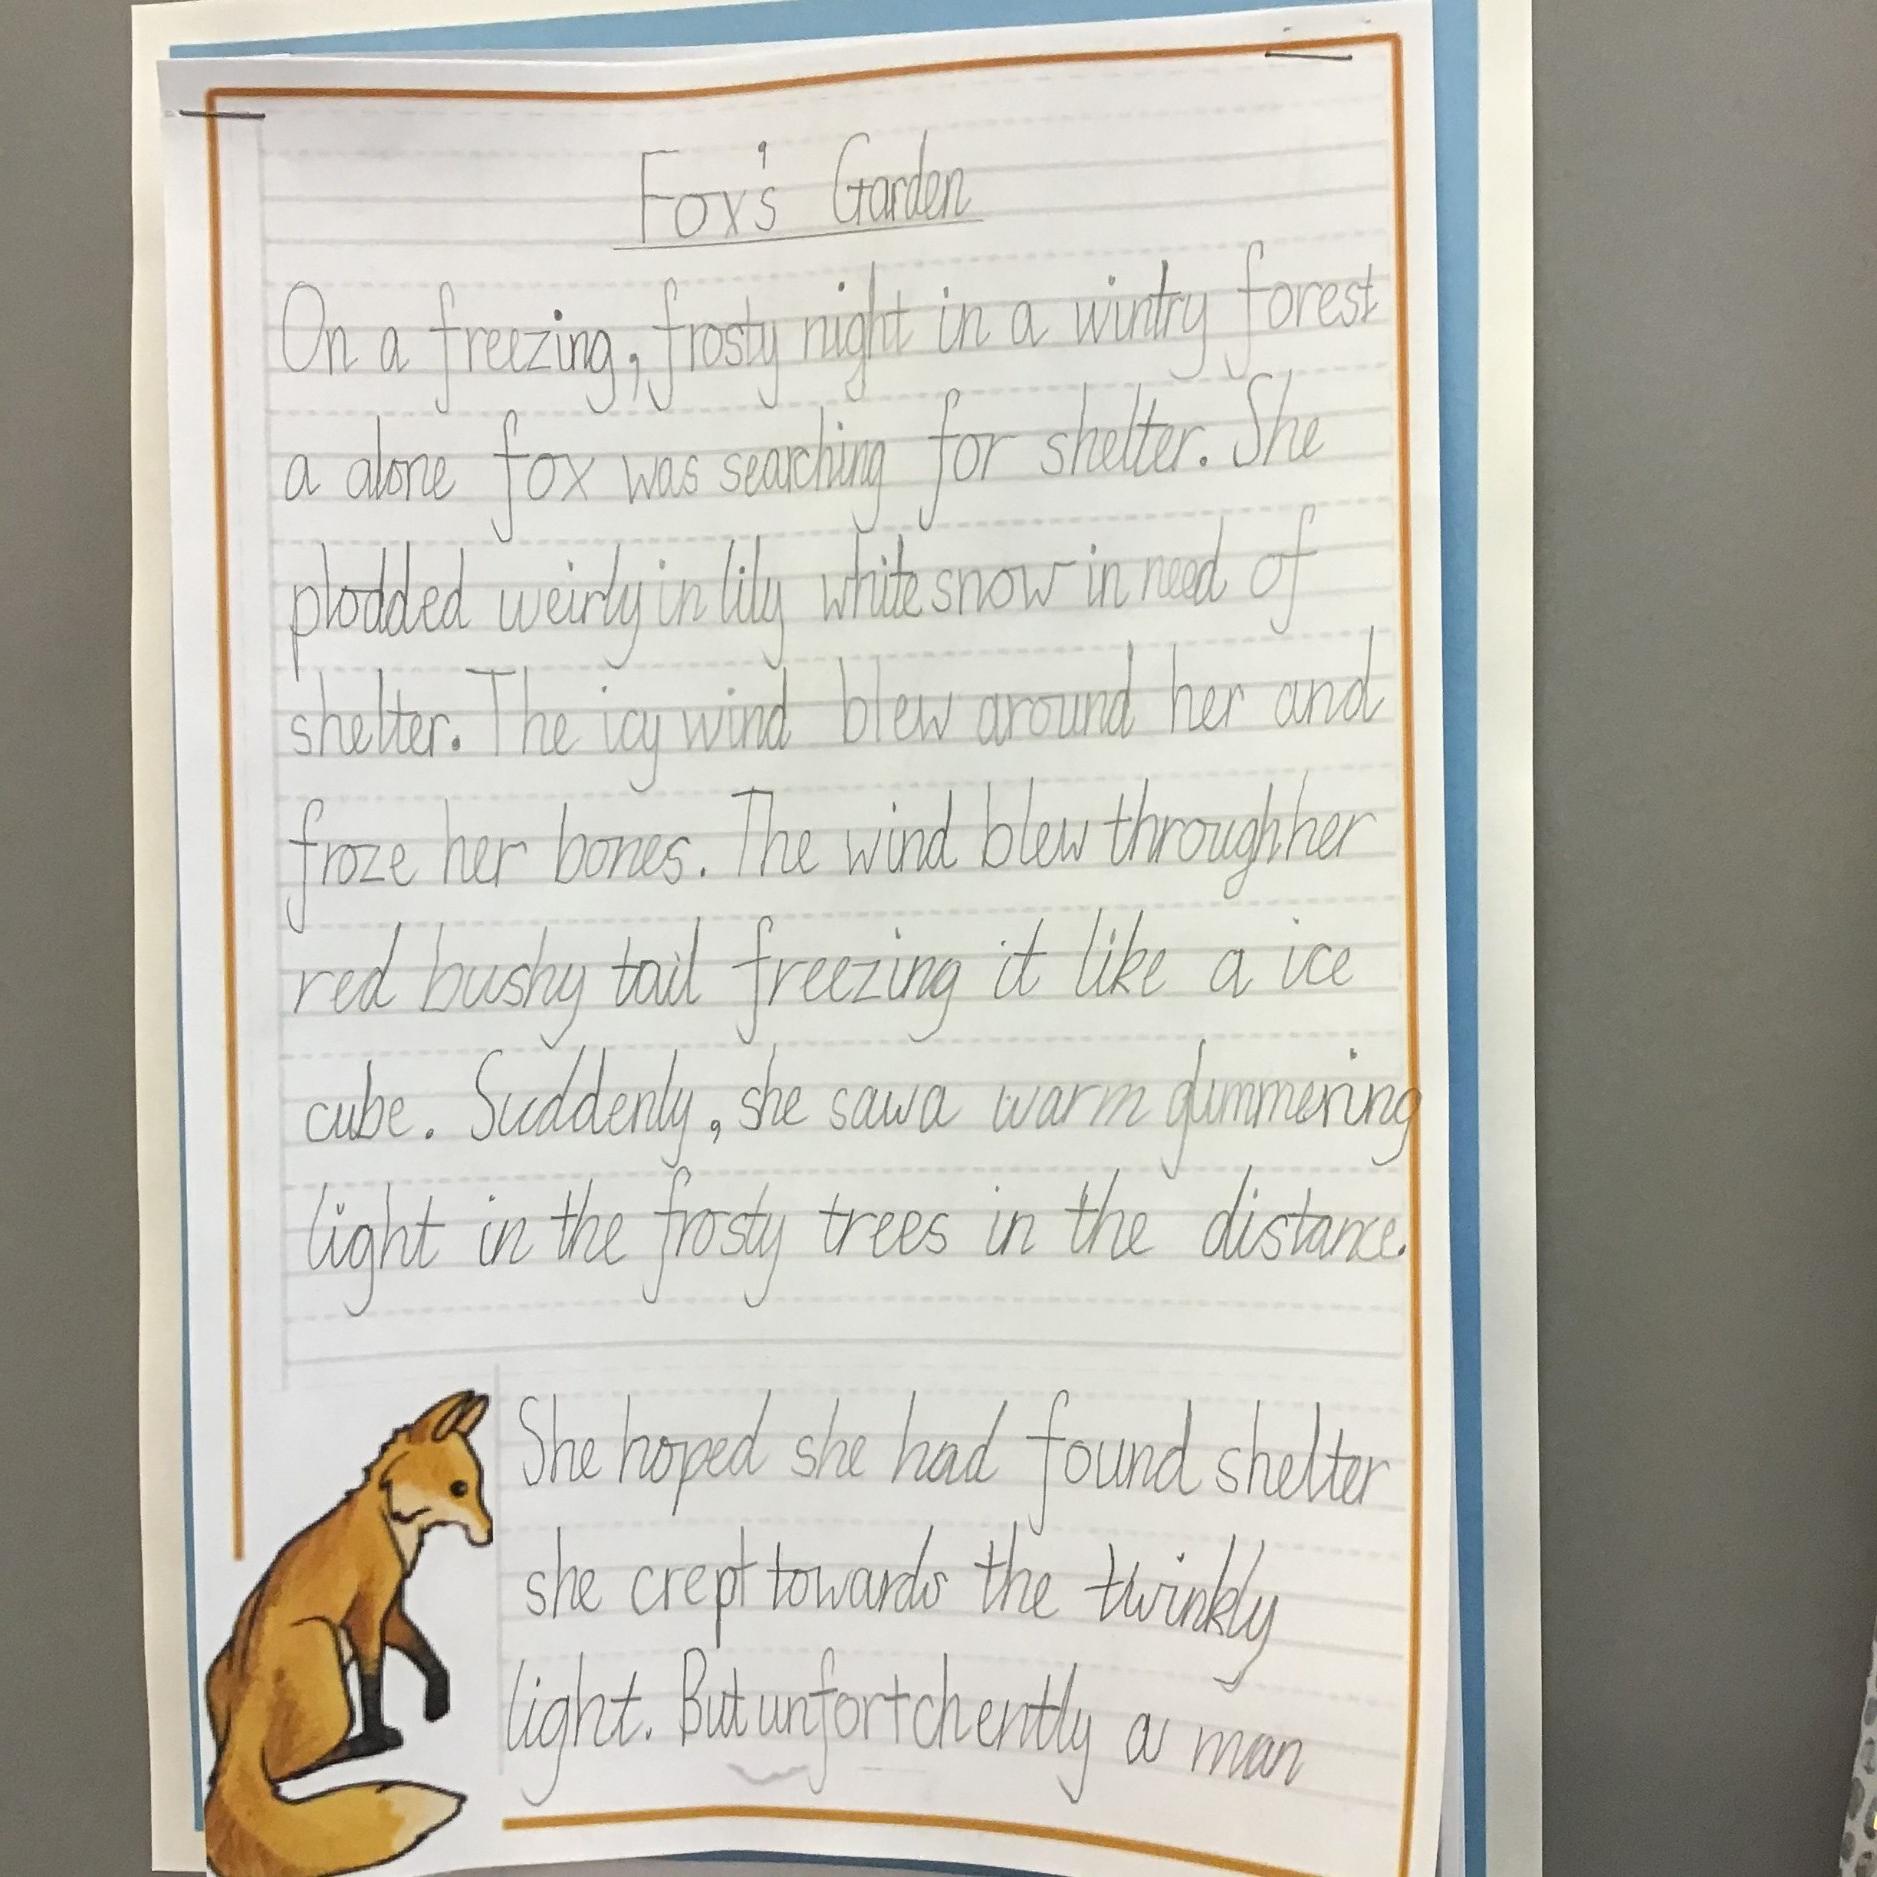 Fox's Garden
On a freezing, frosty night in a wintry forest
a alone fox was searching for shelter. She
plodded weirly in lily white snow in need of
shelter. The icy wind blew around her and
froze her bones. The wind blew through her
red bushy tail freezing it like a ice
cube. Suddenly, she saw a warm glimmering
light in the frosty trees in the distance.
She hoped she had found shelter
she crept towards the twinkly
light. But unfortchently a man